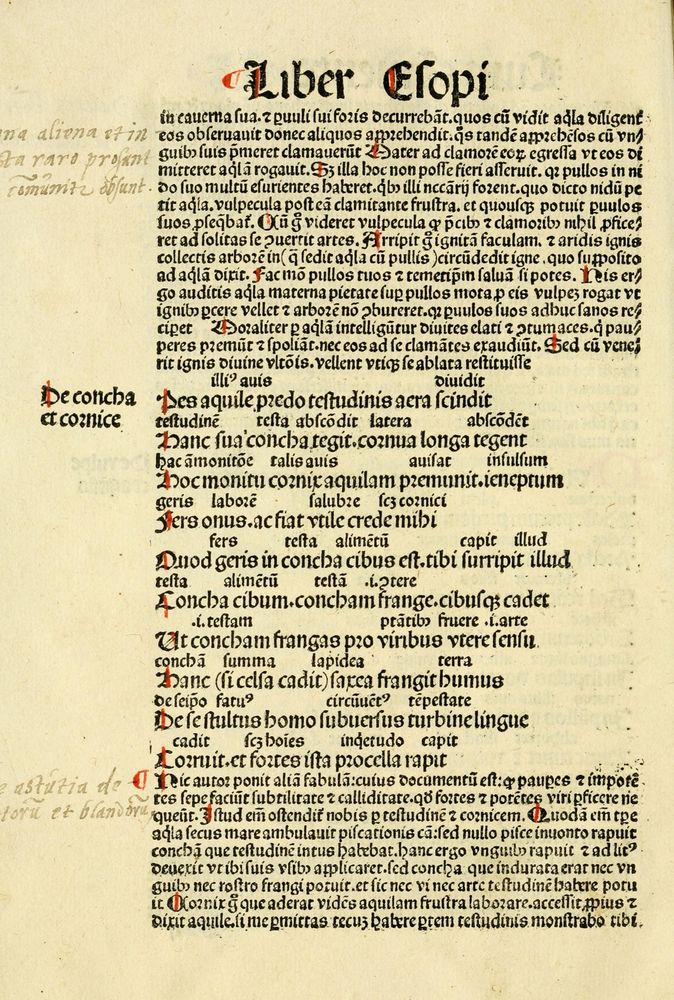 Liber Esopi
in cauerna sua. ⁊ ꝑuuli sui foris decurrebāt. quos cū vidit aq̇la diligent̄
eos obseruauit donec aliquos apprehendit. q̄s tandē apprehēsos cū vn⸗
guibꝰ suis p̄meret clamauerūt Mater ad clamorē eoꝝ egressa vt eos di
mitteret aq̇lam rogauit. Sꝫ illa hoc non posse fieri asseruit. qꝛ pullos in ni
do suo multū esurientes haberet. qḃꝰ illi nccārij forent. quo dicto nidū pe
tit aq̇la. vulpecula post eā clamitante frustra. et quousqꝫ potuit ꝑuulos
suos ꝓseqbat̄. Cū g̊ videret vulpecula ꝙ p̄cibꝰ ⁊ clamoribꝰ nihil ꝓfice⸗
ret ad solitas se ꝯuertit artes. Arripit g̊ ignitā faculam. ⁊ aridis ignis
collectis arborē in (q̄ sedit aq̇la cū pullis) circūdedit igne. quo supposito
ad aq̇lā dixit. Fac mō pullos tuos ⁊ temetip̄m saluā si potes. His er⸗
go auditis aq̇la materna pietate suꝑ pullos mota. ꝓ eis vulpeꝫ rogat vt
ignibꝰ ꝑcere vellet ⁊ arborē nō ꝯbureret. qꝛ ꝑuulos suos adhuc sanos re⸗
ciꝑet Moraliter ꝑ aq̇lam intelligūtur diuites elati ⁊ ꝯtumaces. q̇ pau⸗
peres premūt ⁊ spoliāt. nec eos ad se clamātes exaudiūt. Sed cū vene⸗
rit ignis diuine vltōis. vellent vtiqꝫ se ablata restituisse
illiꝰ auis diuidit
De concha
et cornice
Pes aquile predo testudinis aera scindit
testudinē testa abscōdit latera abscōdēt
Hanc sua concha tegit. cornua longa tegent
hac āmonitōe talis auis auisat insulsum
Hoc monitu cornix aquilam premunit. ieneptum
geris laborē salubre scꝫ cornici
Fers onus. ac fiat vtile crede mihi
fers testa alimētū capit illud
Quod geris in concha cibus est. tibi surripit illud
testa alimētū testā .i. ꝯtere
Concha cibum. concham frange. cibusqꝫ cadet
.i. testam ptātibꝰ fruere .i. arte
Ut concham frangas pro viribus vtere sensu
conchā summa lapidea terra
Hanc (si celsa cadit) saxea frangit humus
de seip̄o fatuꝰ circūuētꝰ tēpestate
De se stultus homo subuersus turbine lingue
cadit scꝫ hoīes inq̇etudo capit
Corruit. et fortes ista procella rapit
Hic autor ponit aliā fabulā: cuius documentū est: ꝙ paupes ⁊ impotē⸗
tes sepe faciūt subtilitate ⁊ calliditate. qd̄ fortes ⁊ potētes viri ꝑficere ne
queūt. Istud em̄ ostendit̄ nobis ꝑ testudinē ⁊ cornicem. Quodā em̄ tꝑe
aq̇la secus mare ambulauit piscationis cā: sed nullo pisce inuonto rapuit
concham que testudinē intus habebat. hanc ergo vnguibꝰ rapuit ⁊ ad litꝰ
deuexit vt ibi suis vsibꝰ applicaret. sed concha que indurata erat nec vn
guibꝰ nec rostro frangi potuit. et sic nec vi nec arte testudinē habere potu
it Cornix g̊ que aderat vidēs aquilam frustra laborare. accessit ꝓpius ⁊
dixit aquile. si me ꝑmittas tecuꝫ habere ꝑtem testudinis monstrabo tibi.
na aliena et in
sta raro prosunt
comunit̄ obsunt.
e astutia de
torū et blandorū